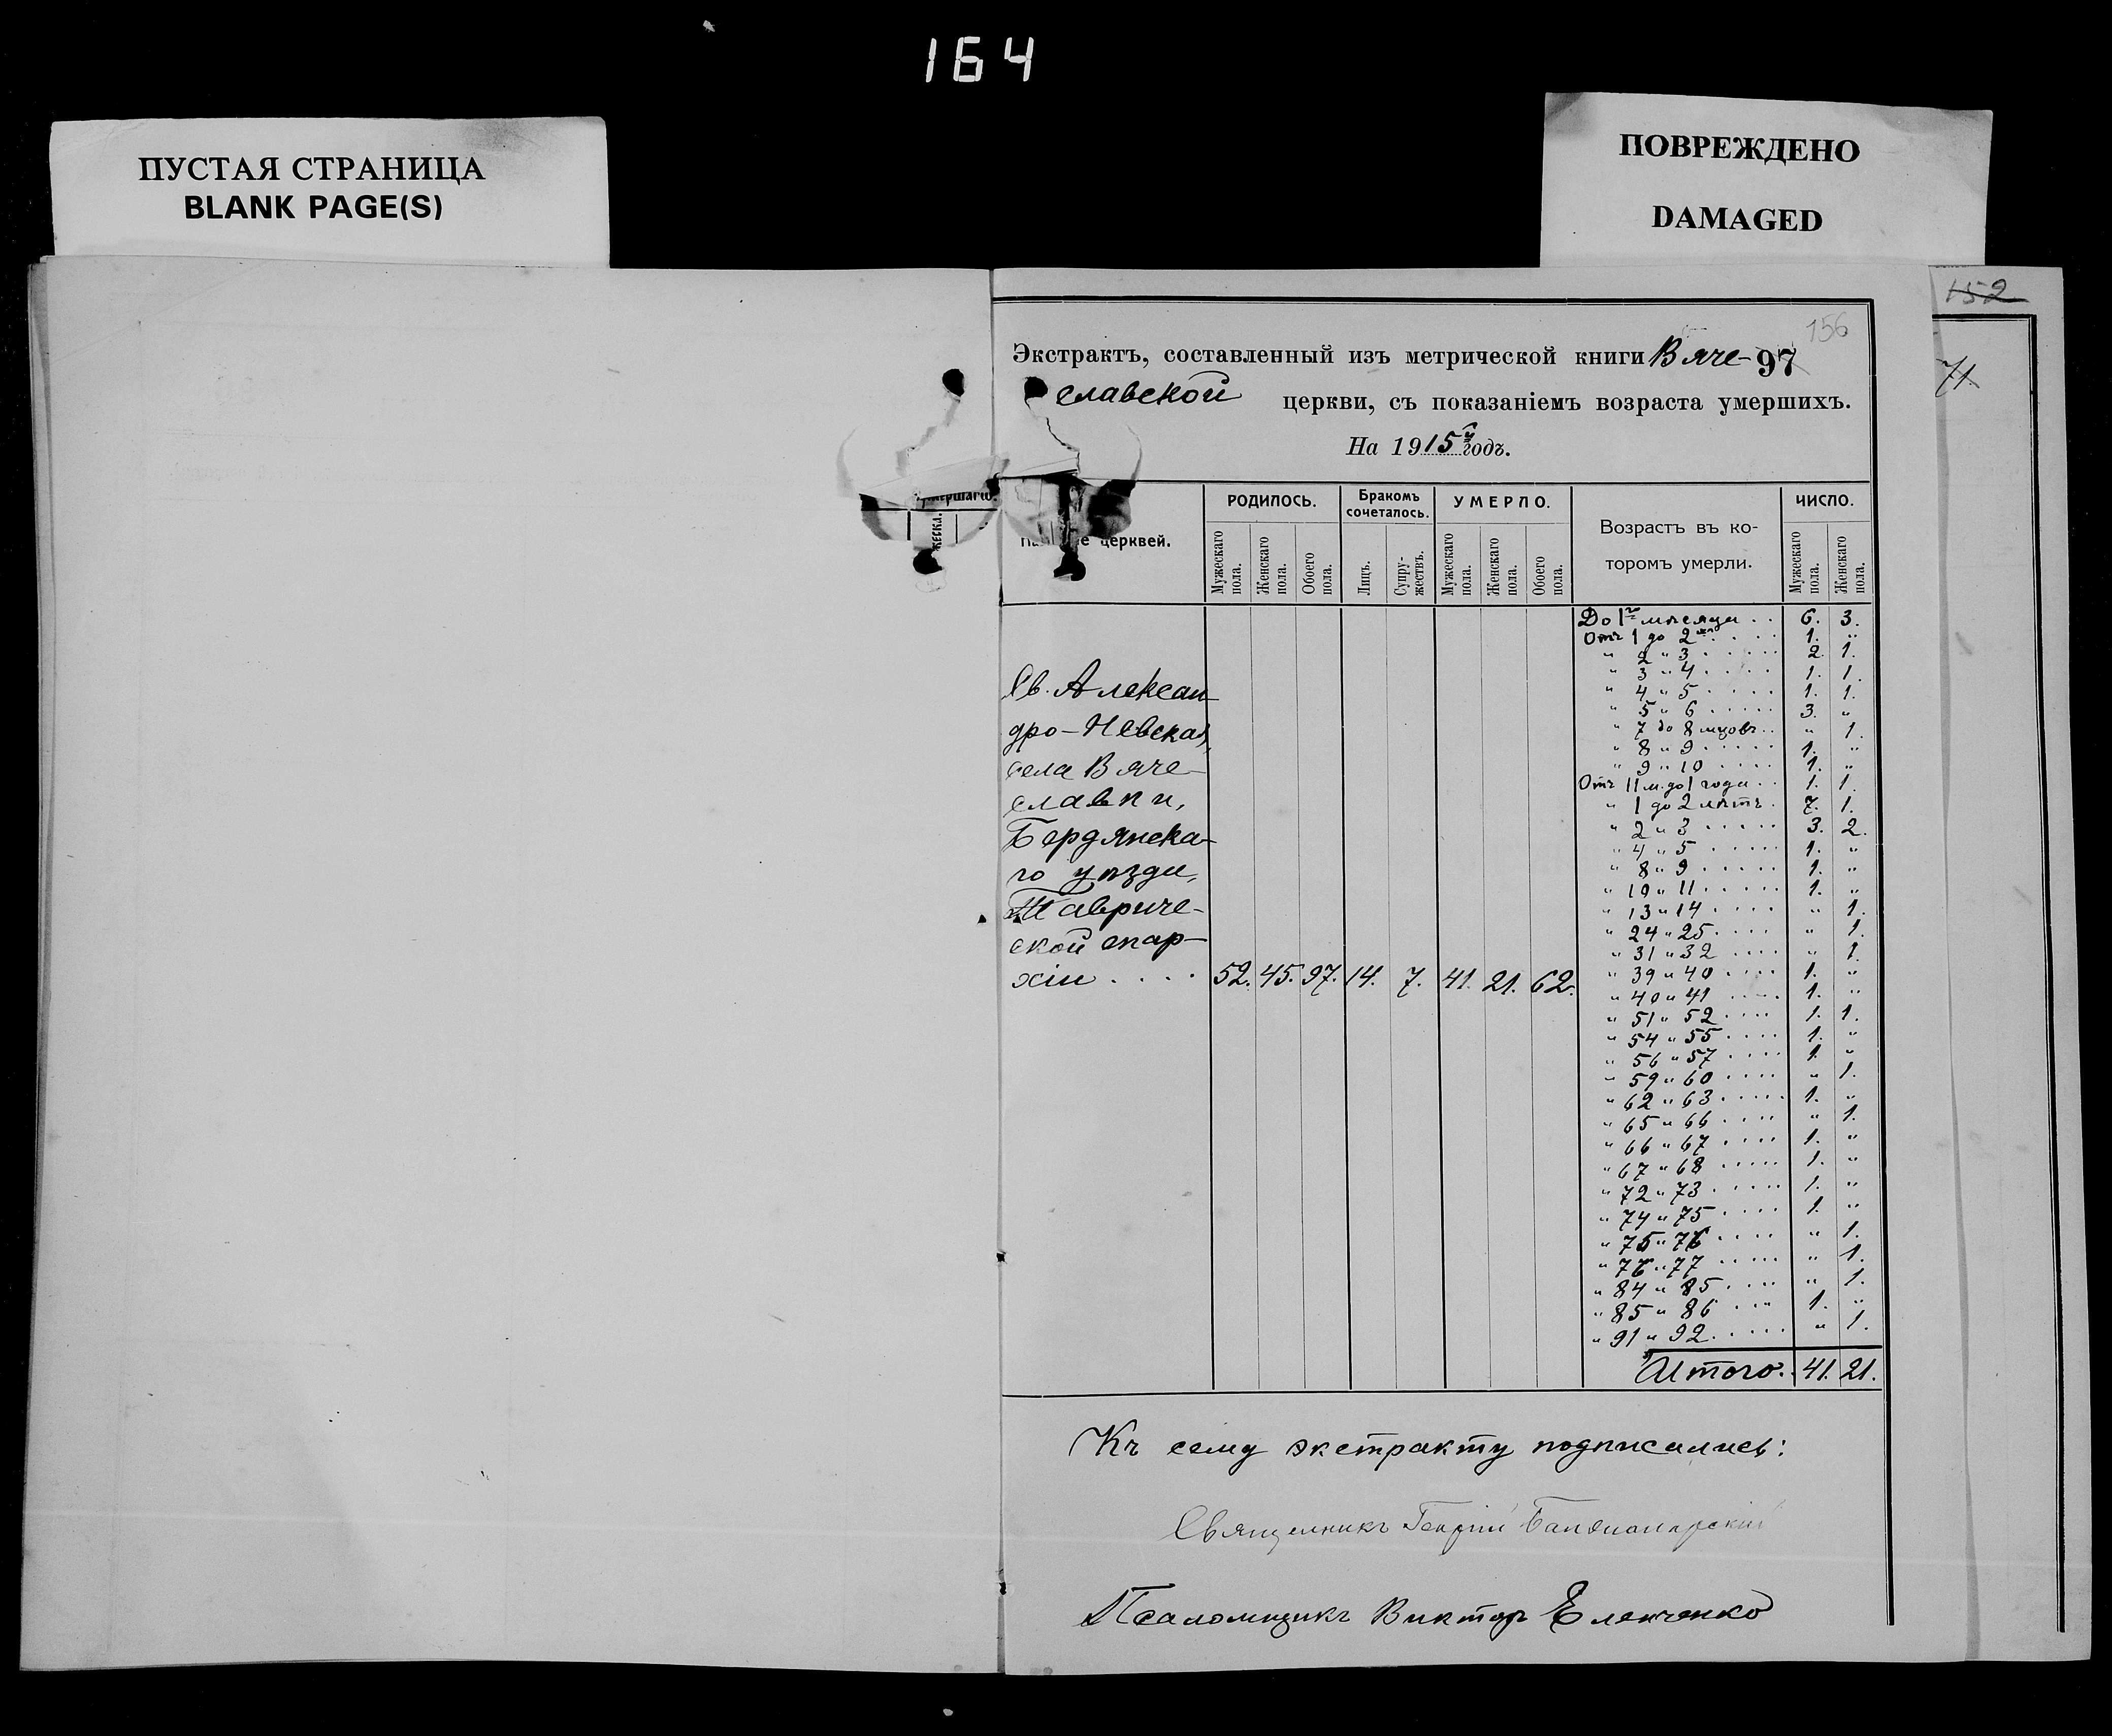 164
ПУСТАЯ СТРАНИЦА
BLANK PAGE(S)
ПОВРЕЖДЕНО
DAMAGED
152
71
156
Экстрактъ, составленный изъ метрической книги Вяче- 97
славской церкви, съ показаніемъ возраста умершихъ.
На 1915й годъ.
церквей.
РОДИЛОСЬ.
Мужескаго пола.
Женскаго пола.
Обоего пола.
Бракомъ сочеталось.
Лицъ.
Супружествъ.
УМЕРЛО.
Мужескаго пола.
Женскаго пола.
Обоего пола.
Возрастъ въ ко-
торомъ умерли.
ЧИСЛО.
Мужескаго пола.
Женскаго пола.
Св. Алексан
дро-Невская,
села Вяче-
славки,
Бердянска-
го уѣзда,
Тавриче-
ской епар-
хіи . . . . 52. 45. 97. 14. 7. 41. 21. 62.
До 1го мѣсяца . . 6. 3.
Отъ 1 до 2 . . . . 1. "
" 2 " 3 . . . . . 2. 1.
" 3 " 4 . . . . . 1. 1.
" 4 " 5 . . . . . 1. 1.
" 5 " 6 . . . . . 3. "
" 7 до 8 мцовъ . . " 1.
" 8 " 9 . . . . . 1. "
" 9 " 10 . . . . 1. "
Отъ 11 м. до 1 года . . 1. 1.
" 1 до 2 лѣтъ . 7. 1.
" 2 " 3 . . . . . 3. 2.
" 4 " 5 . . . . . 1. "
" 8 " 9 . . . . . 1. "
" 10 " 11 . . . . . 1. "
" 13 " 14 . . . . " 1.
" 24 " 25 . . . . " 1.
" 31 " 32 . . . . " 1.
" 39 " 40 . . . . 1. "
" 40 " 41 . . . . 1. "
" 51 " 52 . . . . 1. 1.
" 54 " 55 . . . . 1. "
" 56 " 57 . . . . 1. "
" 59 " 60 . . . . " 1.
" 62 " 63 . . . . . 1. "
" 65 " 66 . . . . " 1.
" 66 " 67 . . . . 1. "
" 67 " 68 . . . . . 1. "
" 72 " 73 . . . . . 1. "
" 74 " 75 . . . . 1. "
" 75 " 76 . . . . " 1.
" 76 " 77 . . . . . " 1.
" 84 " 85 . . . . " 1.
" 85 " 86 . . . 1. "
" 91 " 92 . . . . . " 1.
Итого. 41. 21.
Къ сему экстракту подписались:
Священникъ Георгій
Псаломщикъ Викторъ Еленченко